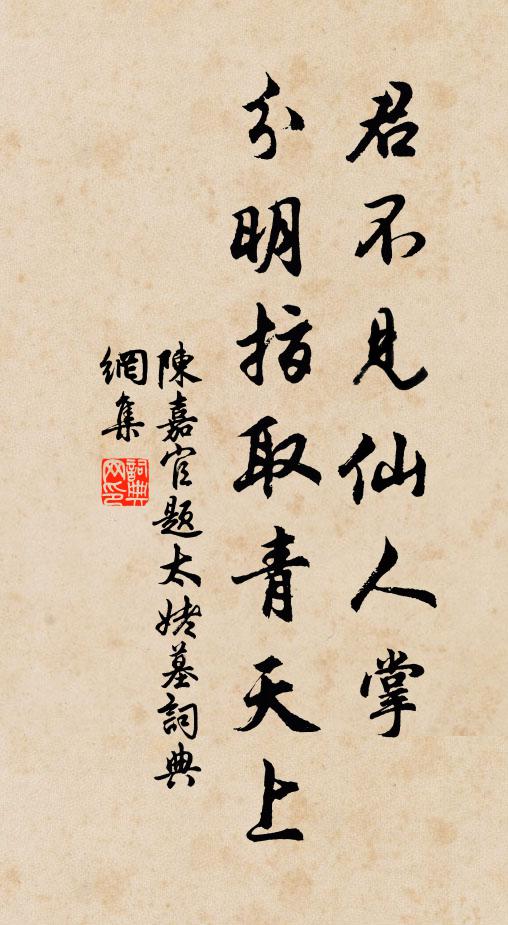 君不見仙人掌
分明指取青天上
陳嘉官題太姥墓詞典
網集
詞典
网印